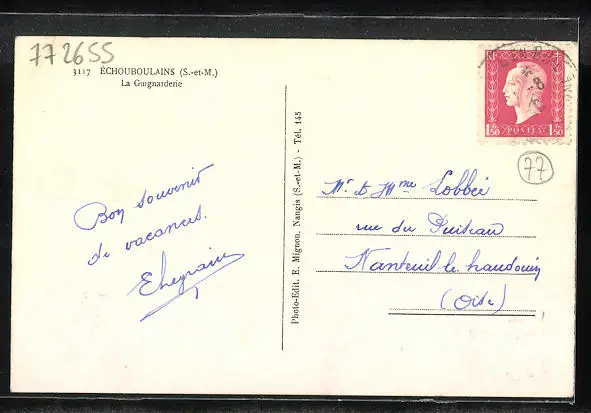 772655
3117 ÉCHOUBOULAINS (S.-et-M.)
La Guignarderie
Bon souvenir
de vacances.
Photo-Edit. E. Mignon, Nangis (S.-et-M.) - Tél. 145
1f50 POSTES 1f50
77
Mr et Mme Lobbé
rue du Puiseau
Nanteuil le haudouin
(Oise)